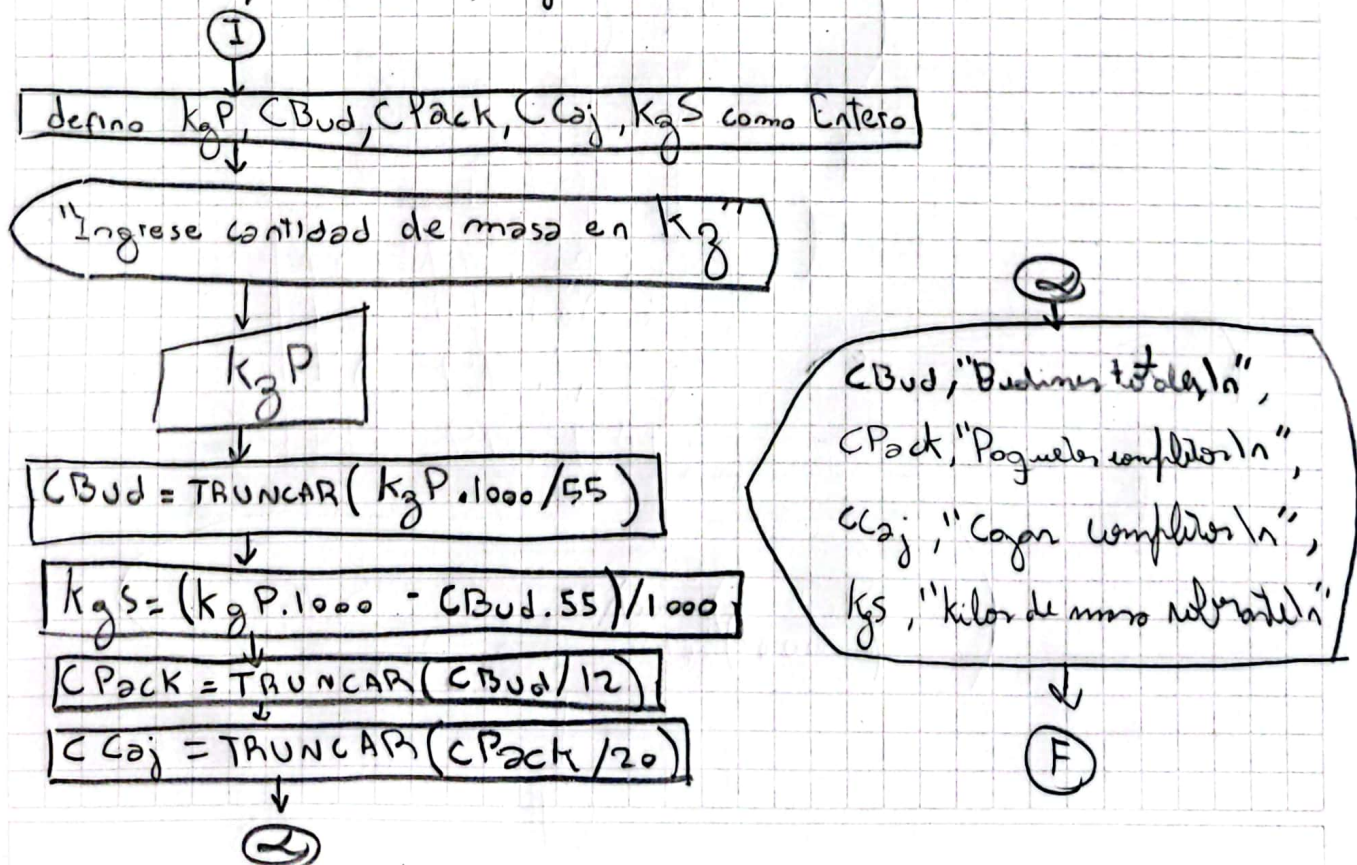 I
defino kgP, CBud, CPack, CCaj, kgS como Entero
"Ingrese cantidad de masa en kg"
kgP
CBud = TRUNCAR(kgP.1000/55)
kgS = (kgP.1000 - CBud.55)/1000
CPack = TRUNCAR(CBud/12)
CCaj = TRUNCAR(CPack/20)
α
α
CBud, "Budines totales\n",
CPack, "Paquetes completos\n",
CCaj, "Cajas completas\n",
kgS, "kilos de masa sobrante\n"
F